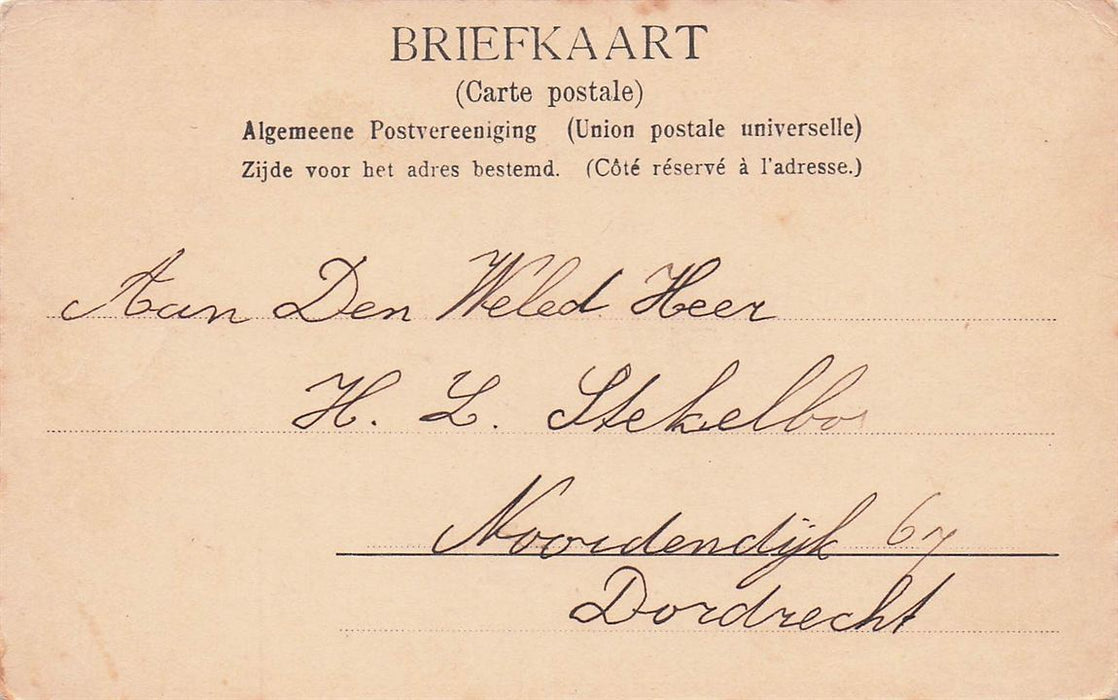 BRIEFKAART
(Carte postale)
Algemeene Postvereeniging (Union postale universelle)
Zijde voor het adres bestemd. (Côté réservé à l'adresse.)
Aan Den Weled Heer
H. L. Stekelbos
Noordendijk 67
Dordrecht